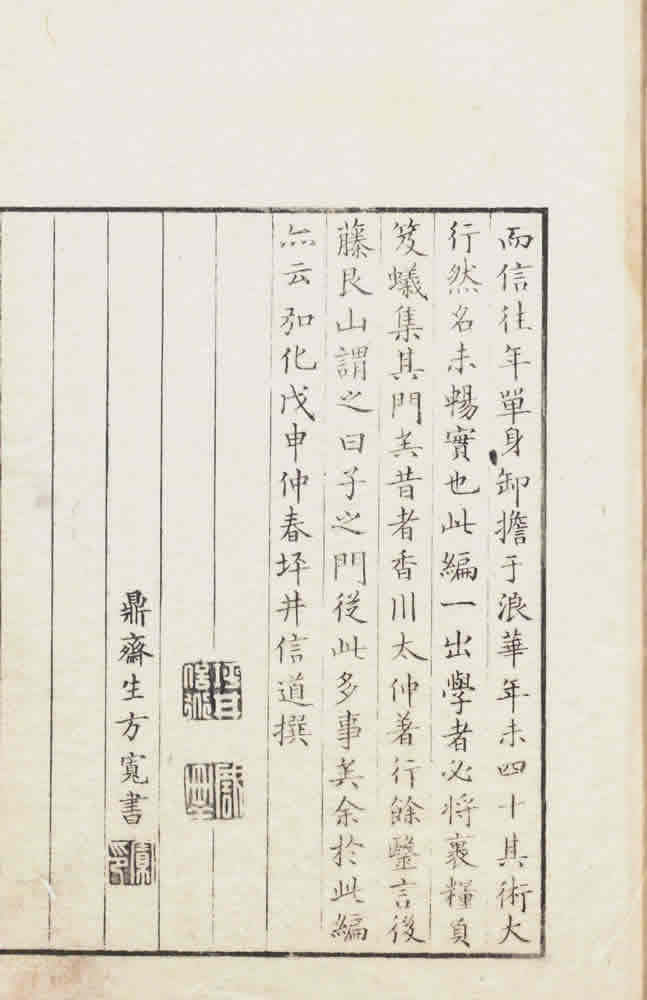 而信往年單身卸擔于浪華年未四十其術大
行然名未暢實也此編一出學者必將裹糧負
笈蟻集其門矣昔者香川太仲著行餘醫言後
藤艮山謂之曰子之門從此多事矣余於此編
亦云弘化戊申仲春坪井信道撰
鼎齋生方寬書